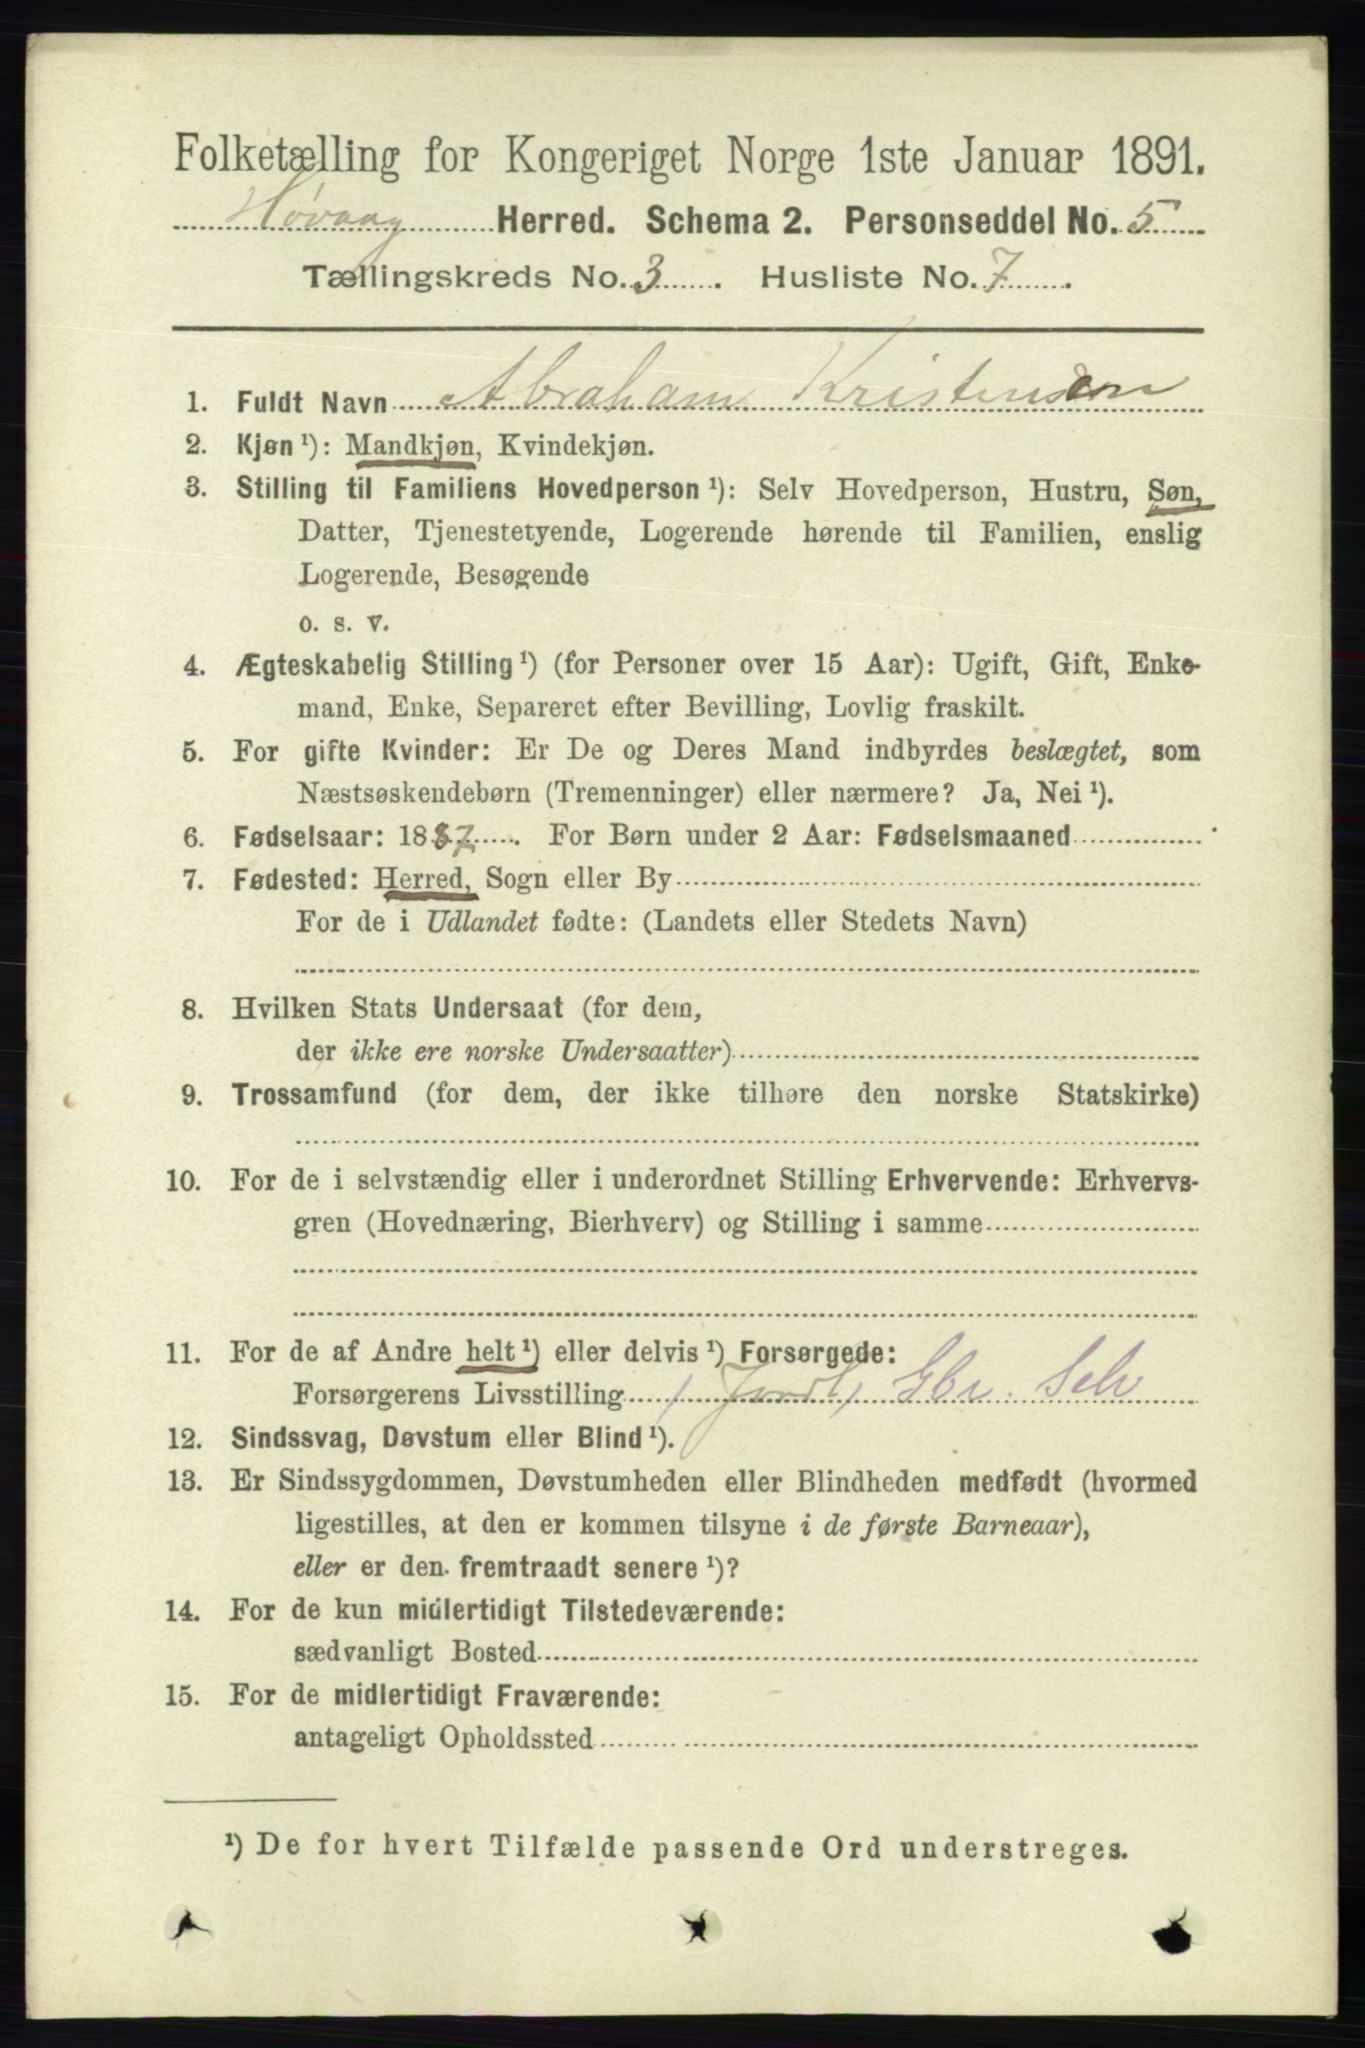 Folketælling for Kongeriget Norge 1ste Januar 1891.
Høvaag Herred. Schema 2. Personseddel No. 5
Tællingskreds No. 3. Husliste No. 7.
1. Fuldt Navn Abraham Kristensen
2. Kjøn ¹): Mandkjøn, Kvindekjøn.
3. Stilling til Familiens Hovedperson ¹): Selv Hovedperson, Hustru, Søn,
Datter, Tjenestetyende, Logerende hørende til Familien, enslig
Logerende, Besøgende
o. s. v.
4. Ægteskabelig Stilling ¹) (for Personer over 15 Aar): Ugift, Gift, Enke-
mand, Enke, Separeret efter Bevilling, Lovlig fraskilt.
5. For gifte Kvinder: Er De og Deres Mand indbyrdes beslægtet, som
Næstsøskendebørn (Tremenninger) eller nærmere? Ja, Nei ¹).
6. Fødselsaar: 1887. For Børn under 2 Aar: Fødselsmaaned
7. Fødested: Herred, Sogn eller By
For de i Udlandet fødte: (Landets eller Stedets Navn)
8. Hvilken Stats Undersaat (for dem,
der ikke ere norske Undersaatter)
9. Trossamfund (for dem, der ikke tilhøre den norske Statskirke)
10. For de i selvstændig eller i underordnet Stilling Erhvervende: Erhvervs-
gren (Hovednæring, Bierhverv) og Stilling i samme
11. For de af Andre helt ¹) eller delvis ¹) Forsørgede:
Forsørgerens Livsstilling Gbr. Selv
12. Sindssvag, Døvstum eller Blind ¹).
13. Er Sindssygdommen, Døvstumheden eller Blindheden medfødt (hvormed
ligestilles, at den er kommen tilsyne i de første Barneaar),
eller er den fremtraadt senere ¹)?
14. For de kun midlertidigt Tilstedeværende:
sædvanligt Bosted
15. For de midlertidigt Fraværende:
antageligt Opholdssted
¹) De for hvert Tilfælde passende Ord understreges.